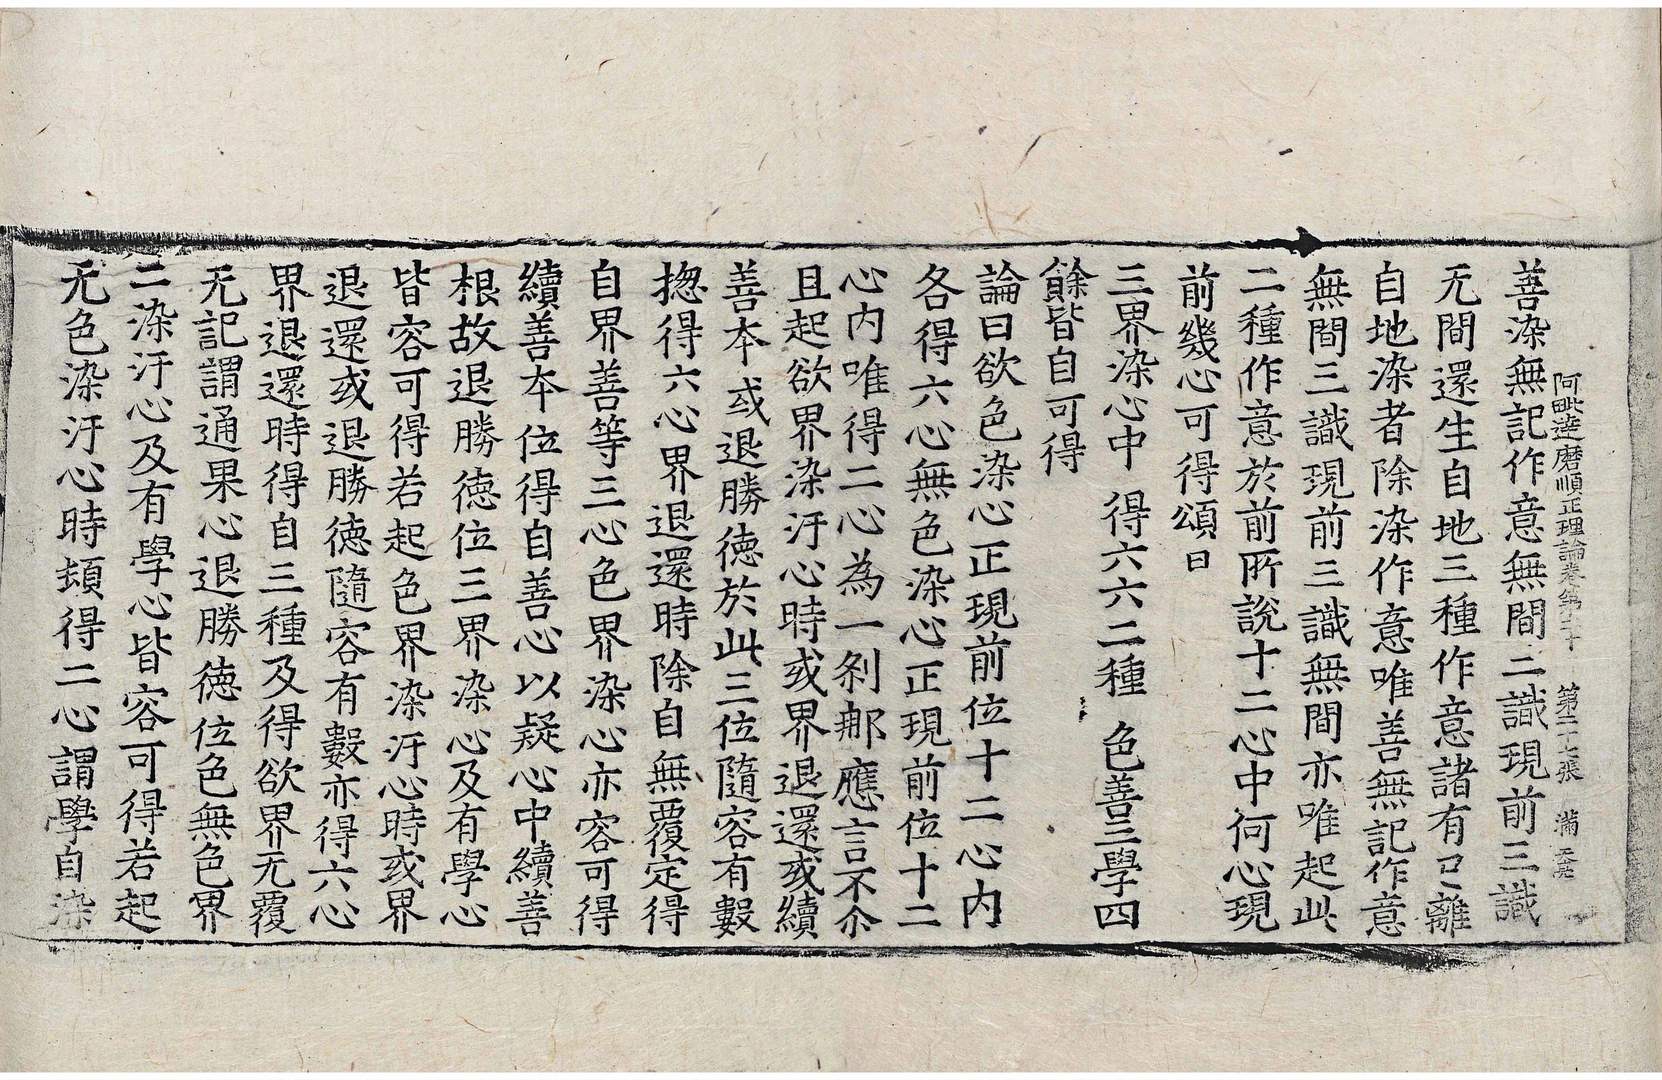 阿毗達磨順正理論卷第二十 第二十七張 滿
善染無記作意無間二識現前三識
无間還生自地三種作意諸有已離
自地染者除染作意唯善無記作意
無間三識現前三識無間亦唯起此
二種作意於前所說十二心中何心現
前幾心可得頌曰
三界染心中 得六六二種 色善三學四
餘皆自可得
論曰欲色染心正現前位十二心內
各得六心無色染心正現前位十二
心內唯得二心為一剎那應言不尒
且起欲界染汙心時或界退還或續
善本或退勝德於此三位隨容有數
揔得六心界退還時除自無覆定得
自界善等三心色界染心亦容可得
續善本位得自善心以疑心中續善
根故退勝德位三界染心及有學心
皆容可得若起色界染汙心時或界
退還或退勝德隨容有數亦得六心
界退還時得自三種及得欲界无覆
无記謂通果心退勝德位色無色界
二染汙心及有學心皆容可得若起
无色染汙心時頓得二心謂學自染